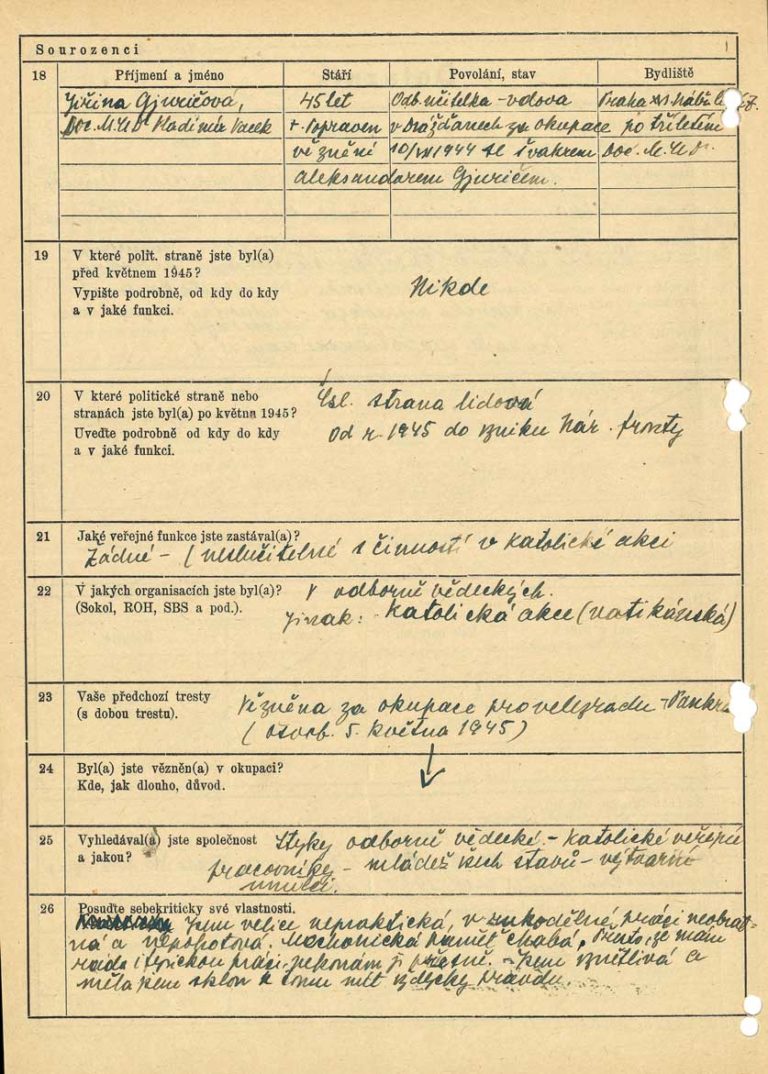 Sourozenci
18 Příjmení a jméno Stáří Povolání, stav Bydliště
Jiřina Gjuričová, 45 let Odb. učitelka - vdova Praha XVI Nábř.
Doc. M.U.Dr Vladimír Vacek +. Popraven v Drážďanech za okupace po tříletém
věznění 10/VII 1944 se švakrem Doc. M.U.Dr.
Aleksandarem Gjuričem.
19 V které polit. straně jste byl(a)
před květnem 1945?
Vypište podrobně, od kdy do kdy
a v jaké funkci.
Nikde
20 V které politické straně nebo
stranách jste byl(a) po květnu 1945?
Uveďte podrobně od kdy do kdy
a v jaké funkci.
Čsl. strana lidová
od r. 1945 do vzniku Nár. fronty
21 Jaké veřejné funkce jste zastával(a)?
Žádné - (neslučitelné s činností v katolické akci
22 V jakých organisacích jste byl(a)?
(Sokol, ROH, SBS a pod.).
V odborně vědeckých.
Jinak: Katolická akce (vatikánská)
23 Vaše předchozí tresty
(s dobou trestu).
Vězněna za okupace pro velezradu - Pankr
( osvob. 5. května 1945)
24 Byl(a) jste vězněn(a) v okupaci?
Kde, jak dlouho, důvod.
25 Vyhledával(a) jste společnost
a jakou?
Styky odborně vědecké. - Katolické veřejné
pracovníky - mládež všech stavů - výtvarní
umělci.
26 Posuďte sebekriticky své vlastnosti.
Jsem velice nepraktická, v rukodělné práci neobrat-
ná a nepohotová. Mechanická paměť chabá. Přesto, že mám
ráda fysickou práci, nekonám ji přesně. - Jsem vznětlivá a
měla jsem sklon k tomu mít vždycky pravdu.